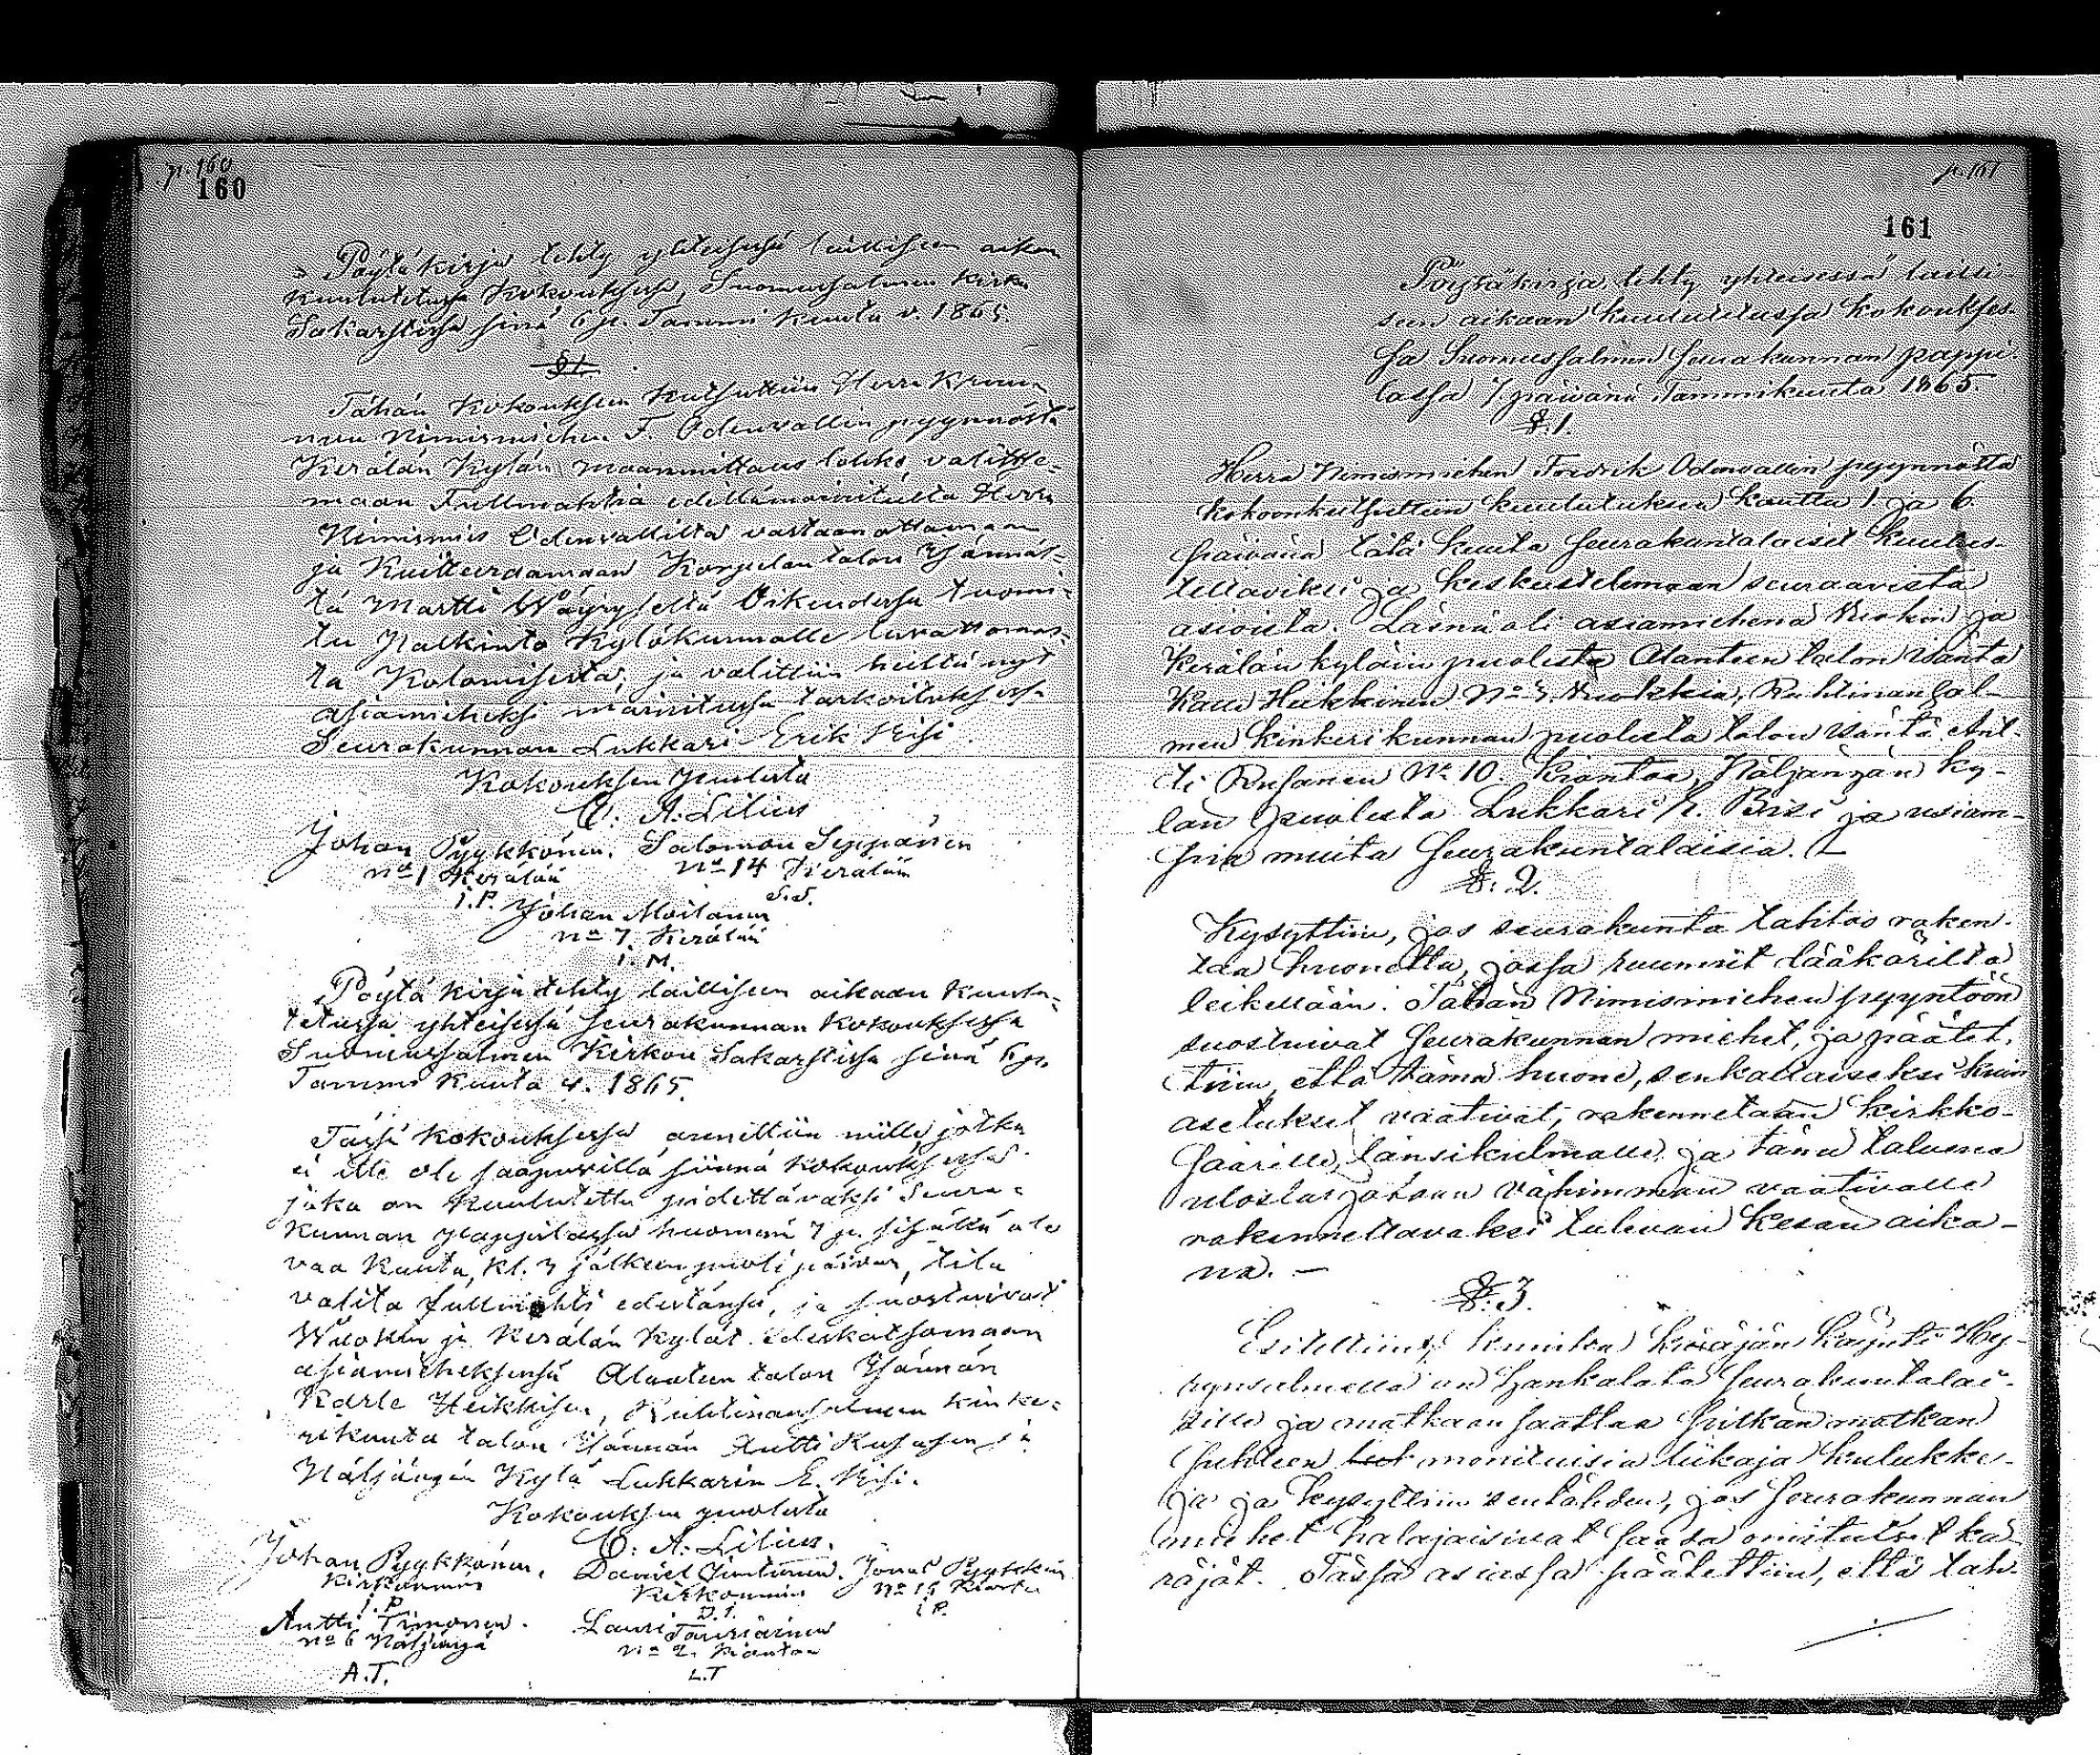 p. 160
160
Pöytäkirja tehty yhteisessä lailliseen aikan
kuulutetussa Kokouksessa, Suomussalmen Kirkon
Sakarstissa sinä 6 p. Tammi Kuuta v. 1865.
§1.
Tähän Kokouksen Kutsuttiin Herra Kruunun
nimismiehen F. Odenvallin pyynnöstä
Kerälän Kylän maanmittaus lohko valitse-
maan Fullmahtia edellämainitulta Herra
Nimismies Odenvallilta vastaanottamaan
ja Kuitteeraamaan Korpelan talon Isännäl-
tä Martti Wäyryseltä Oikeudessa tuomi-
tu Palkinto Kyläkunnalle luvattomas-
ta Kalomisesta, ja valittiin heiltä nyt
asiamieheksi mainitussa tarkoituksessa
Seurakunnan Lukkari Erik Kisi.
Kokouksen puolesta
C. A. Lilius
Johan Pyykkönen. Salomon Seppänen
No 1 Kerälän No 14 Kerälän
J.P. S.S.
Johan Moilanen
No 7 Kerälän
J. M.
Pöytäkirja tehty lailliseen aikaan kuulu-
tetussa yhteisessä seurakunnan Kokouksessa
Suomussalmen Kirkon Sakarstissa sinä 6 p.
Tammi Kuuta v. 1865.
Tässä kokouksessa annettiin niille jotka
ei itte ole saapuvilla siinnä kokouksessa
joka on kuulutettu pidettäväksi Seura-
kunnan pappilassa huomenna 7 p. sisällä ole
vaa Kuuta, kl. 3 jälkeen puoli päivän, tila
valita fullmahti edestänsä, ja suostuivat
Wuokin ja Kerälän Kylät edeskatsomaan
asiamieheksensä Alanteen talon Isännän
Karle Heikkisen, Ruhtinansalmen kinke-
rikunta talon Isännän Antti Kusasen ja
Näljängän Kylä Lukkarin E. Kisi.
Kokouksen puolesta
C. A. Lilius.
Johan Pyykkönen. Daniel Juntunen. Jonas Pyykkön
Kirkonmies Kirkonmies No 15 Kianta
J. P. D. J. J. P.
Antti Timonen. Lauri Tauriainen
No 6 Näljängä No 2. Kiantaa
A.T. L.T
p. 161
161
Pöytäkirja, tehty yhteisessä lailli-
seen aikaan kuulutetussa kokoukses-
sa Suomussalmen seurakunnan pappi-
lassa 7 päivänä Tammikuuta 1865.
§. 1.
Herra Nimismiehen Fredrik Odenvallin pyynnöstä
kokoonkutsuttiin kuulutuksen kautta 1. ja 6.
päivänä tätä kuuta seurakuntalaiset kuulus-
tellaviksi ja keskustelemaan seuraavista
asioista. Läsnä oli asiamiehenä Wuokin ja
Kerälän kyläin puolesta Alanteen talon isäntä
Kalle Heikkinen No 3. Wuokkia, Ruhtinansal-
men kinkerikunnan puolesta talon isäntä Ant-
ti Kusanen No 10. Kiantaa, Näljängän ky-
län puolesta Lukkari E. Bisi ja usiam-
pia muita seurakuntalaisia.
§. 2.
Kysyttiin, jos seurakunta tahtoo raken-
taa huonetta, jossa ruumiit lääkäriltä
leikellään. Tähän Nimismiehen pyyntöön
suostuivat seurakunnan miehet, ja päätet-
tiin, että tämä huone, senkaltaiseksi kuin
asetukset vaativat, rakennetaan kirkko-
saarille, länsikulmalle, ja tänä talvena
uloslarjotaan vähimmän vaativalle
rakennettavaksi tulevan kesän aika-
na. —
§. 3.
Esiteltiin, kuinka käräjän käynti Hy-
rynsalmella on hankalata seurakuntalai-
sille ja matkaan saattaa pitkän matkan
suhteen moniluisia liikaja kulukke-
ja ja kysyttiin sentähden, jos seurakunnan
miehet halajaisivat saada omituiset kä-
räjät. Tässä asiassa päätettiin, että tah-